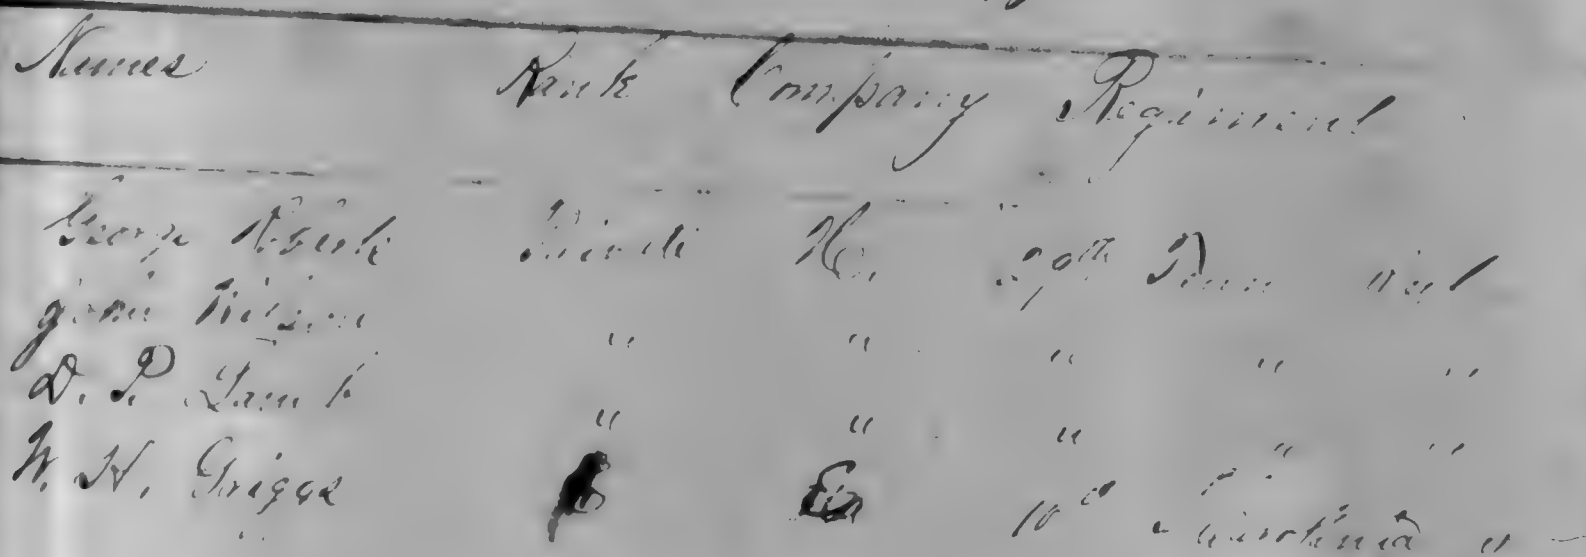 Names Rank Company Regiment
George Private H. 29th Penn Vol
John Wilson " " " " "
D. P. Lamb " " " " "
W. H. Griggs 10th Carolina "